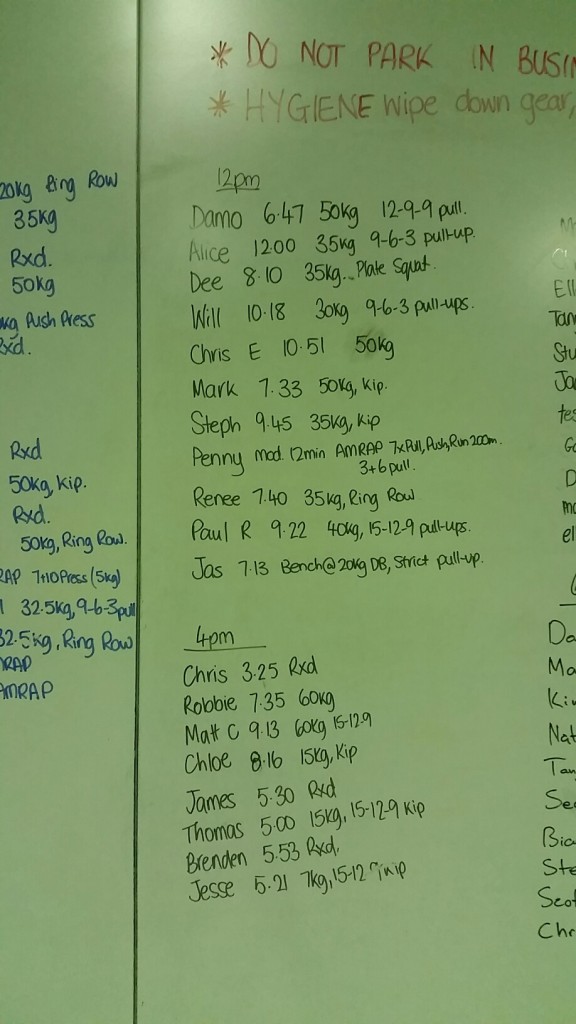 * DO NOT PARK IN BUSIN
* HYGIENE wipe down gear,
20kg Ring Row
35kg
Rxd.
50kg
kg Push Press
Rxd.
Rxd
50kg, Kip.
Rxd.
50kg, Ring Row.
RAP 7+10 Press (5kg)
32.5kg, 9-6-3 pull
32.5kg, Ring Row
MRAP
AMRAP
12pm
Damo 6.47 50kg 12-9-9 pull.
Alice 12.00 35kg 9-6-3 pull-up.
Dee 8.10 35kg. Plate Squat.
Will 10.18 30kg 9-6-3 pull-ups.
Chris E 10.51 50kg
Mark 7.33 50kg, kip.
Steph 9.45 35kg, Kip
Penny mod. 12min AMRAP 7xPull, Push, Run 200m.
3+6 pull.
Renee 7.40 35kg, Ring Row
Paul R 9.22 40kg, 15-12-9 pull-ups.
Jas 7.13 Bench@20kg DB, Strict pull-up.
4pm
Chris 3.25 Rxd
Robbie 7.35 60kg
Matt C 9.13 60kg 15-12-9
Chloe 8.16 15kg, Kip
James 5.30 Rxd
Thomas 5.00 15kg, 15-12-9 Kip
Brenden 5.53 Rxd.
Jesse 5.21 7kg, 15-12
Ell
Tan
Stu
Ja
tes
Ga
D
ma
el
Da
Ma
Kin
Nat
Tan
Sea
Bia
Ste
Scot
Chr